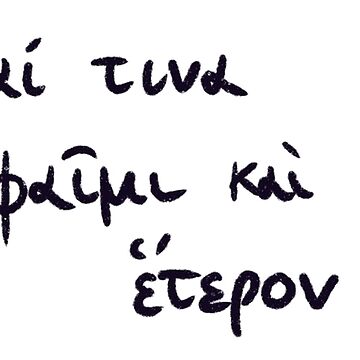 αί τινα
φαῖμι καὶ
ἕτερον